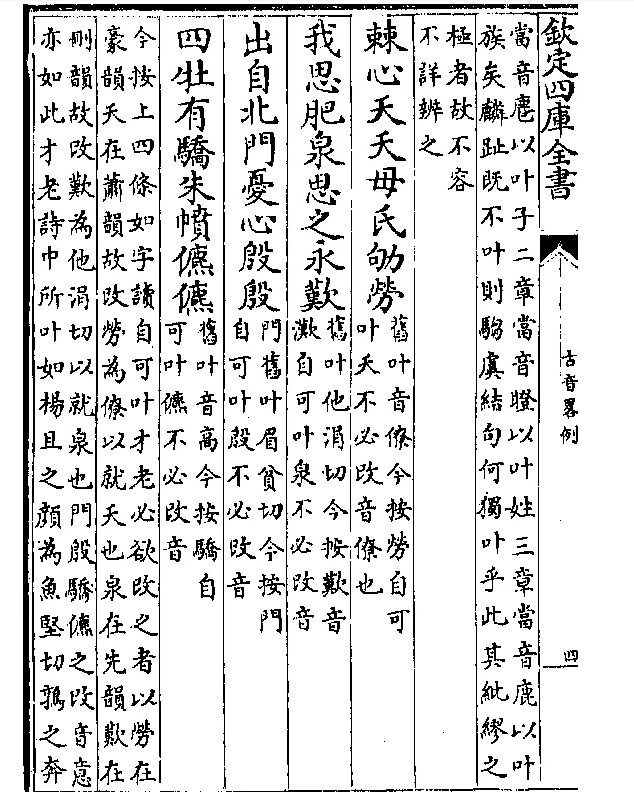 欽定四庫全書
古音畧例
四
當音以叶子二章當音瞪以叶姓三章當音鹿以叶
族矣麟趾既不叶則騶虞結句何獨叶乎此其紕繆之
極者故不容
不詳辨之
棘心夭夭母氏劬勞
舊叶音僚今按勞自可
叶夭不必改音僚也
我思肥泉思之永歎
舊叶他涓切今按歎音
灘自可叶泉不必改音
出自北門憂心殷殷
門舊叶眉貧切今按門
自可叶殷不必改音
四牡有驕朱幩儦儦
舊叶音高今按驕自
可叶儦不必改音
今按上四條如字讀自可叶才老必欲改之者以勞在
豪韻夭在蕭韻故改勞為僚以就夭也泉在先韻歎在
刪韻故改歎為他涓切以就泉也門殷驕儦之改音意
亦如此才老詩中所叶如楊且之顏為魚堅切鶉之奔